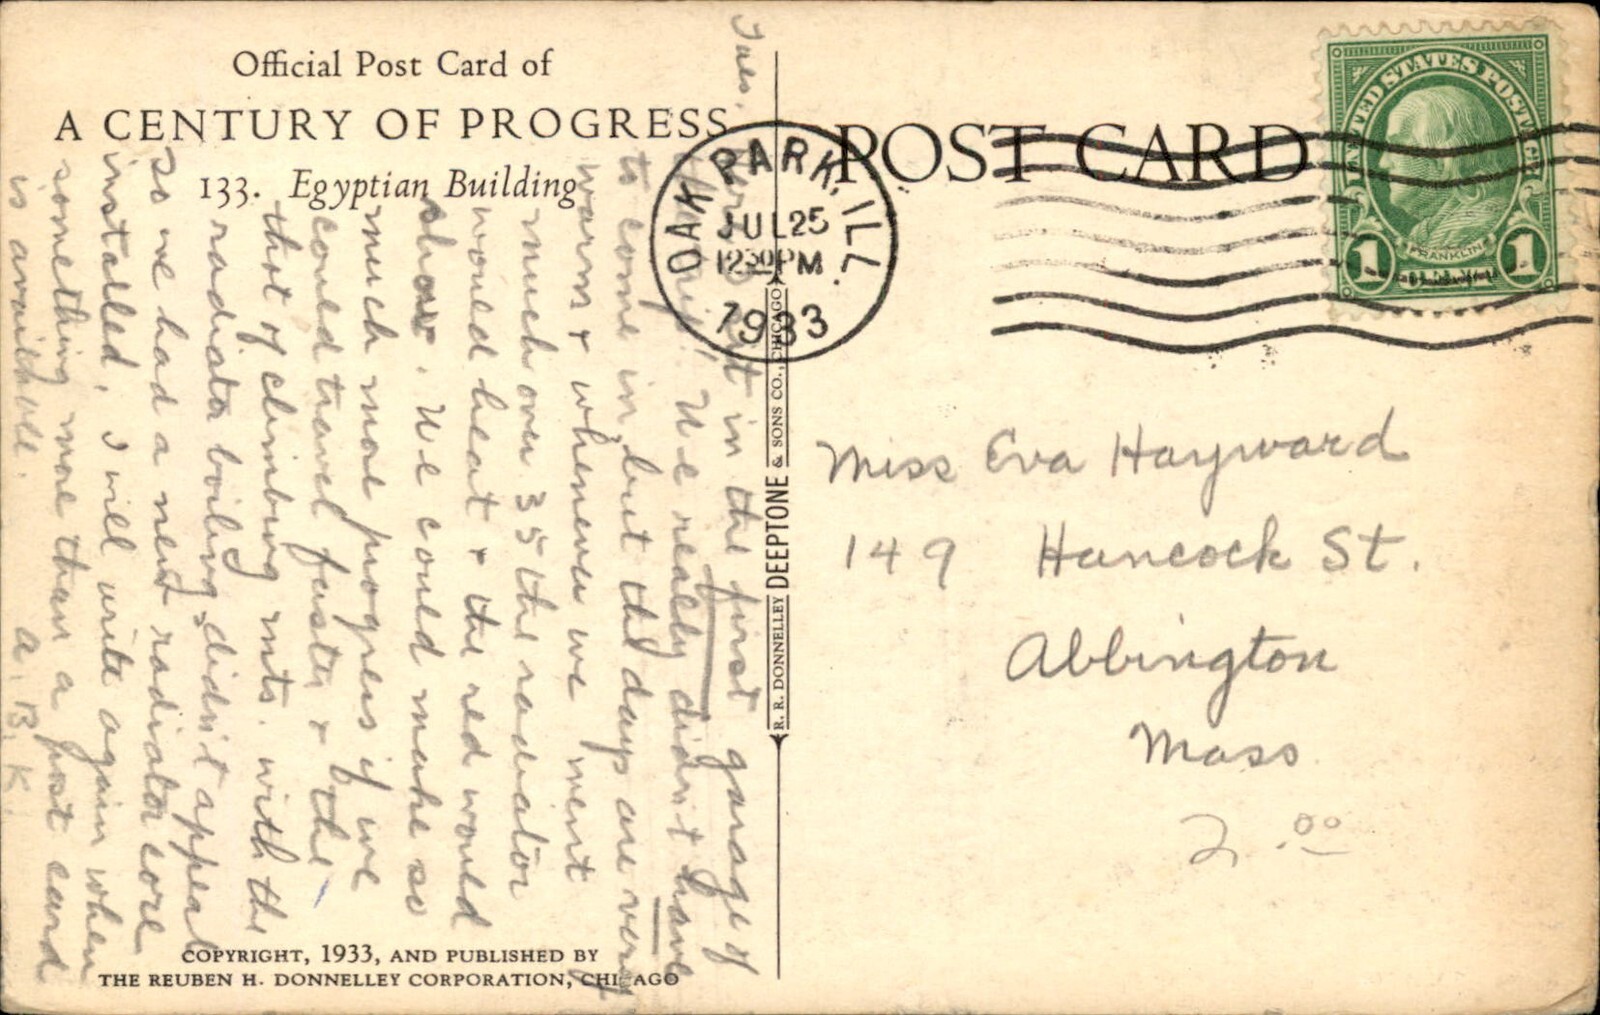 Official Post Card of
A CENTURY OF PROGRESS
133. Egyptian Building
POST CARD
OAK PARK, ILL.
JUL 25
12 30 PM
1933
UNITED STATES POSTAGE
FRANKLIN
1 1
Tues.
in the first garage of
trip! We really didn't have
to come in, but the days are very
warm & whenever we went
much over 35 the radiator
would heat & the red would
show. We could make so
much more progress if we
could travel faster & the
thot of climbing mts. with the
radiator boiling, didn't appeal
so we had a new radiator core
installed. I will write again when
something more than a post card
is available. A. B. K.
R. R. DONNELLEY DEEPTONE & SONS CO., CHICAGO
Miss Eva Hayward
149 Hancock St.
Abbington
Mass
2.00
COPYRIGHT, 1933, AND PUBLISHED BY
THE REUBEN H. DONNELLEY CORPORATION, CHICAGO